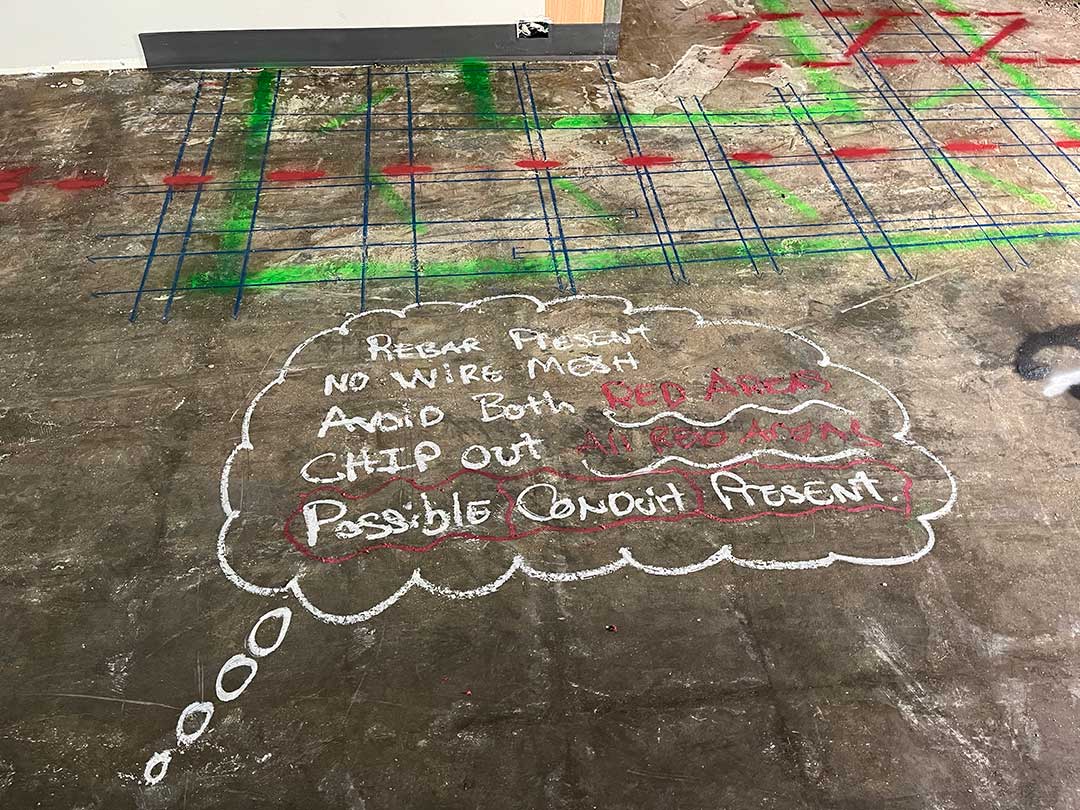 REBAR PRESENT
NO WIRE MESH
AVOID Both RED AREAS
CHIP OUT All RED AREAS
Possible CONDUIT PRESENT.